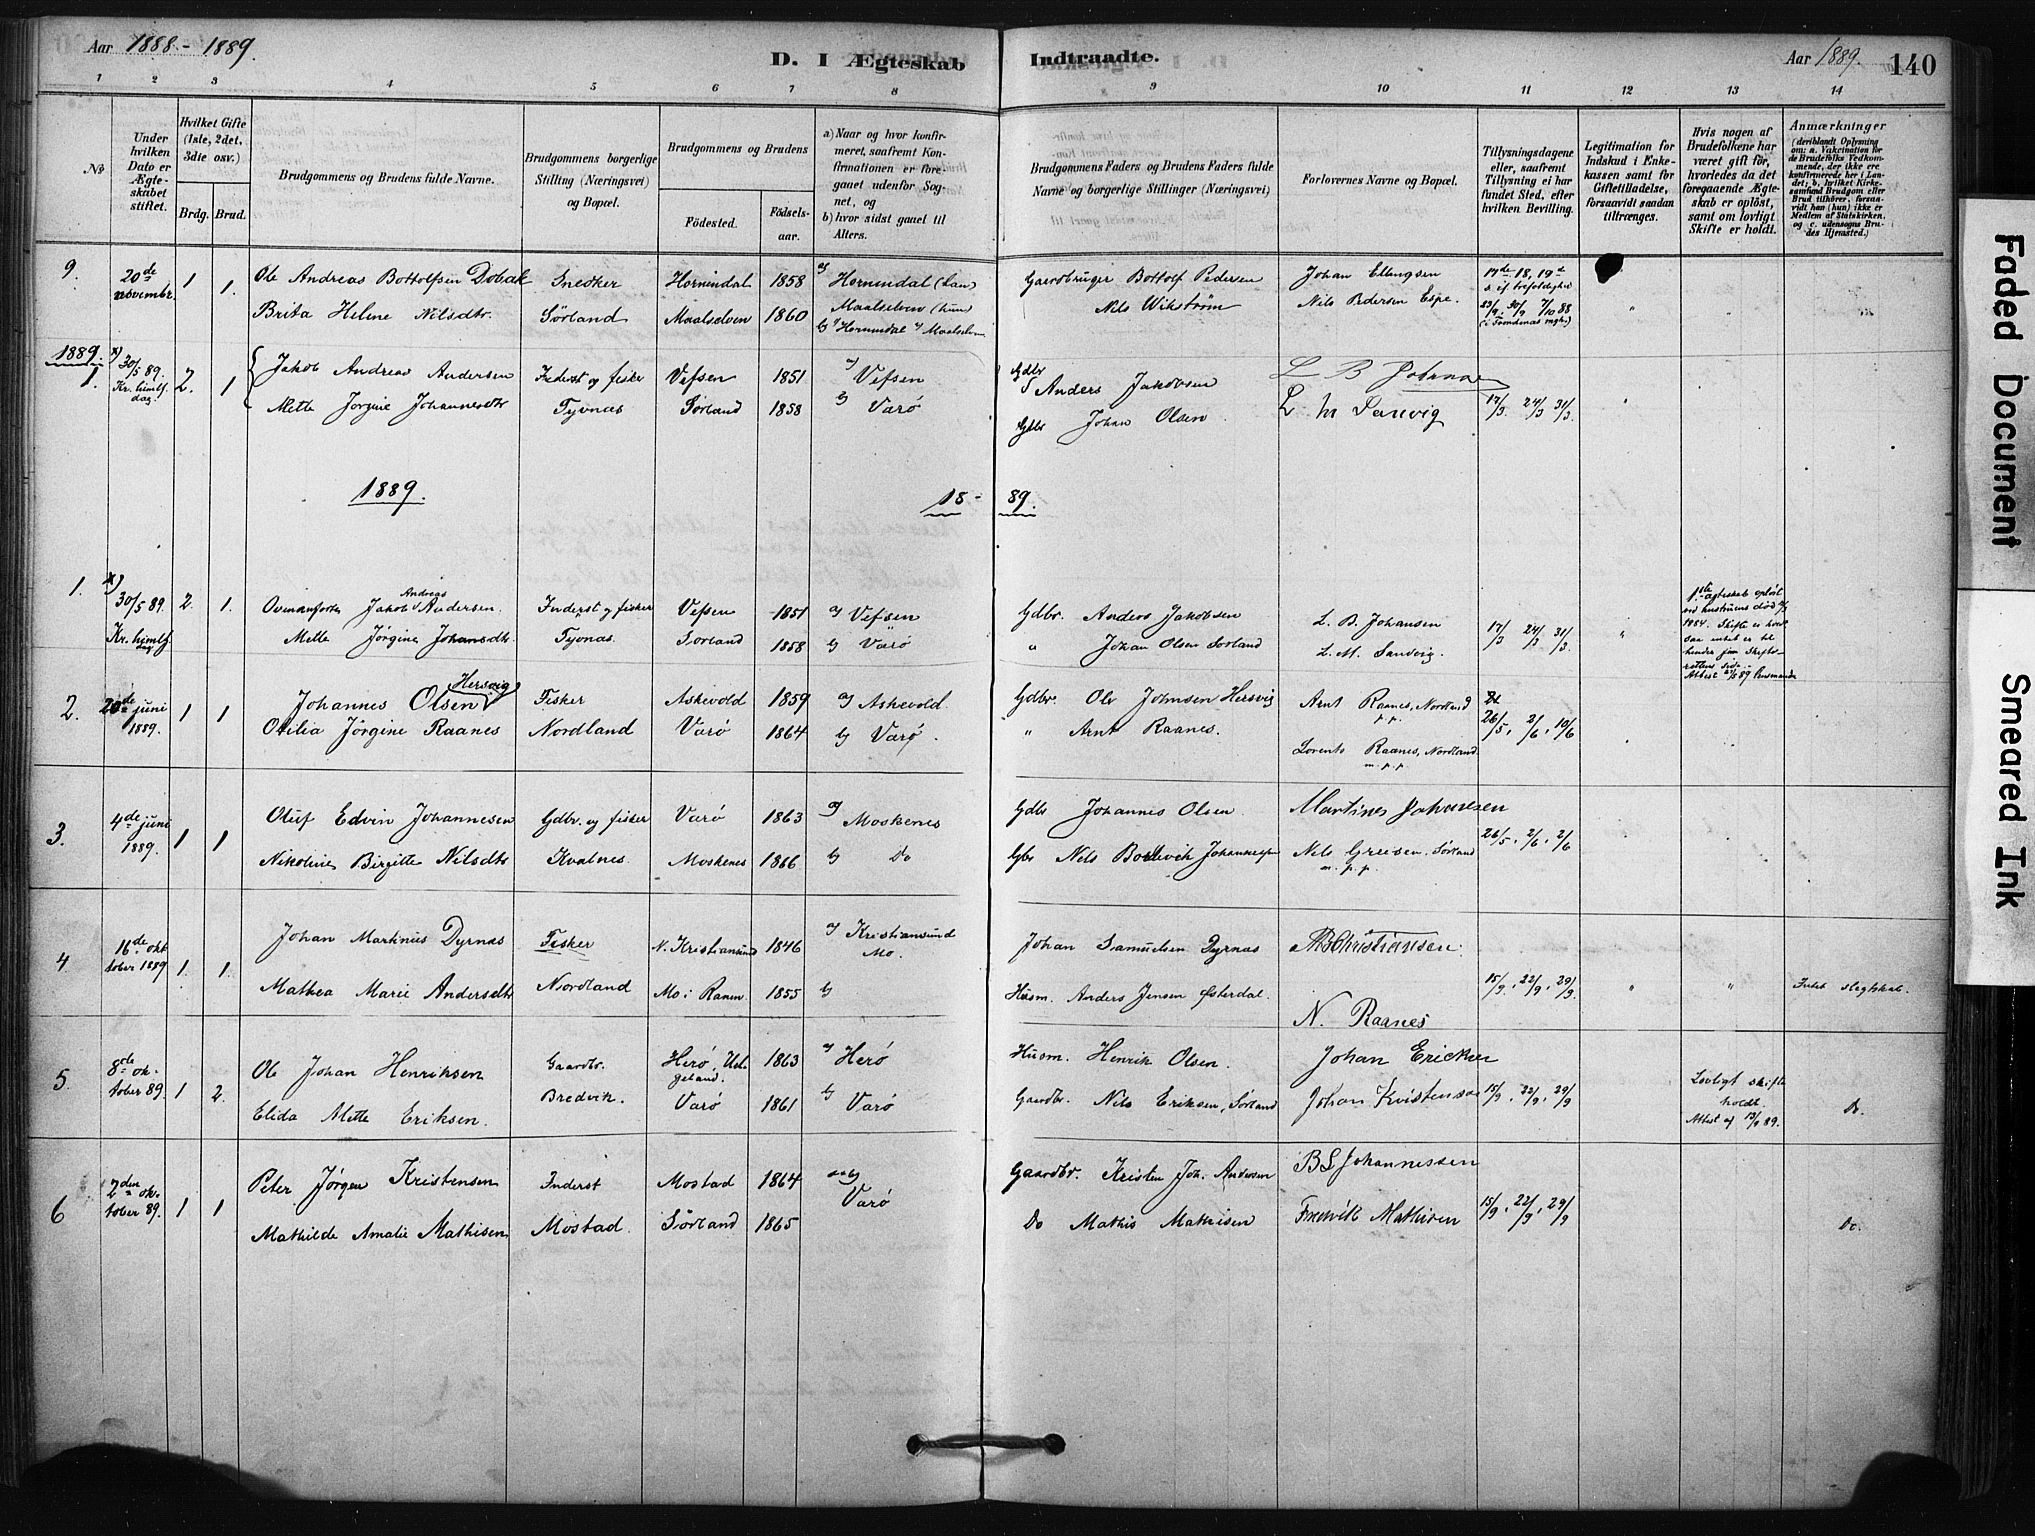 Aar 1888-1889.
D. I Ægteskab Indtraadte.
Aar 1889. 140
1 2 3 4 5 6 7 8 9 10 11 12 13 14
No
Under hvilken Dato er Ægteskabet stiftet.
Hvilket Gifte (1ste, 2det, 3die osv.)
Brdg. Brud.
Brudgommens og Brudens fulde Navne.
Brudgommens borgerlige Stilling (Næringsvei) og Bopæl.
Brudgommens og Brudens
Födested. Födselsaar.
a) Naar og hvor konfirmeret, saafremt Konfirmationen er foregaaet udenfor Sognet, og
b) hvor sidst gaaet til Alters.
Brudgommens Faders og Brudens Faders fulde Navne og borgerlige Stillinger (Næringsvei)
Forlovernes Navne og Bopæl.
Tillysningsdagene eller, saafremt Tillysning ei har fundet Sted, efter hvilken Bevilling.
Legitimation for Indskud i Enkekassen samt for Giftetilladelse, forsaavidt saadan tiltrænges.
Hvis nogen af Brudefolkene har været gift för, hvorledes da det foregaaende Ægteskab er oplöst, samt om lovligt Skifte er holdt.
Anmærkninger (deriblandt Oplysning om: a. Vakcination for de Brudefolks Vedkommende, der ikke ere konfirmerede her i Landet; b. hvilket Kirkesamfund Brudgom eller Brud tilhörer, forsaavidt han (hun) ikke er Medlem af Statskirken, og c. udensogns Brudes Hjemsted.)
9. 20de novembr. 1 1. Ole Andreas Bottolfsen Dobak Snedker Hornindal 1858 a) Hornindal (han) Gaardbruger Bottolf Pedersen Johan Ellingsen 17de 18, 19de
Brita Helene Nilsdtr. Sörland Maalselven 1860 Maalselven (hun) Nils Wikström Nils Pedersen Espe. 23/9 30/9 7/10 88
b) Hornindal Maalselven
1889.
1. x) 30/5 89. Kr. himlf. dag. 2. 1 Jakob Andreas Andersen Inderst og fisker Vefsen 1851 a) Vefsen Gdbr Anders Jakobsen L B Johansen
Mette Jørgine Johannesdtr Tyvnæs Sörland 1858 b) Værö Gdbr Johan Olsen. L M Sanvig 17/3. 24/3 31/3.
1889. 18-89.
1. x) 30/5 89. Kr. himlf. dag 2. 1. Ovenanførte Jakob Andreas Andersen. Inderst og fisker Vefsen 1851 a) Vefsen Gdbr. Anders Jakobsen L. B. Johansen 17/3 24/3 31/3. "
Mette Jørgine Johansdtr. Tyvnæs. Sorland 1858 b) Værö " Johan Olsen Sorland L. M. Sandvig.
1ste ægteskab opløst
ved hustruens død
1884. Skifte er
2. 20de juni 1889. 1 1 Johannes Olsen Hersvig Fisker Askevold 1859 a) Askevold Gdbr. Ole Johnsen Hersvig Arnt Raanes, Nordland p.p. 26/5, 2/6, 10/6
Otilia Jörgine Raanes Nordland Værö 1864 b) Værö. " Arnt Raanes. Lorents Raanes, Nordland m.p.p.
3. 4de juni 1889. 1 1 Oluf Edvin Johannesen Gdbr. og fisker Værö 1863 a) Moskenes Gdbr Johannes Olsen Martines Johansen 26/5, 2/6, 2/6
Nikoline Birgitte Nilsdtr Kvalnes. Moskenes 1866 b) Do Gbr Nils Johannesen Nils Greisen, Sörland m.p.p.
4 16de oktober 1889 1. 1. Johan Martinus Dyrnæs Fisker N. Kristiansund 1846 a) Kristiansund Johan Samuelsen Dyrnæs Christiansen.
Mathea Marie Andersdtr Nordland Mo i Ranen 1855 Mo. b) Husm. Anders Jensen Østerdal. N. Raanes 15/9, 22/9, 29/9. " " Intet slegtskab.
5. 8de oktober 89 1 2. Ole Johan Henriksen Gaardbr. Herö, Helgeland. 1863 a) Herö Husm. Henrik Olsen. Johan Ericksen
Elida Mette Eriksen. Bredvik. Værö 1861 b) Værö Gaardbr. Nils Eriksen, Sørland Johan Kristensen 15/9, 22/9, 29/9 Lovligt skifte holdt. Attest af 13/9 89. Do.
6 2den oktober 89. 1 1 Peter Jørgen Kristensen Inderst Mostad 1864 a og b Værö Gaardbr. Kristen Joh. Andersen B S Johannessen
Mathilde Amalie Mathisen Mostad. Sörland 1865 Do Mathis Mathisen Fredrik Mathisen 15/9, 22/9, 29/9 Do.
Faded Document
Smeared Ink